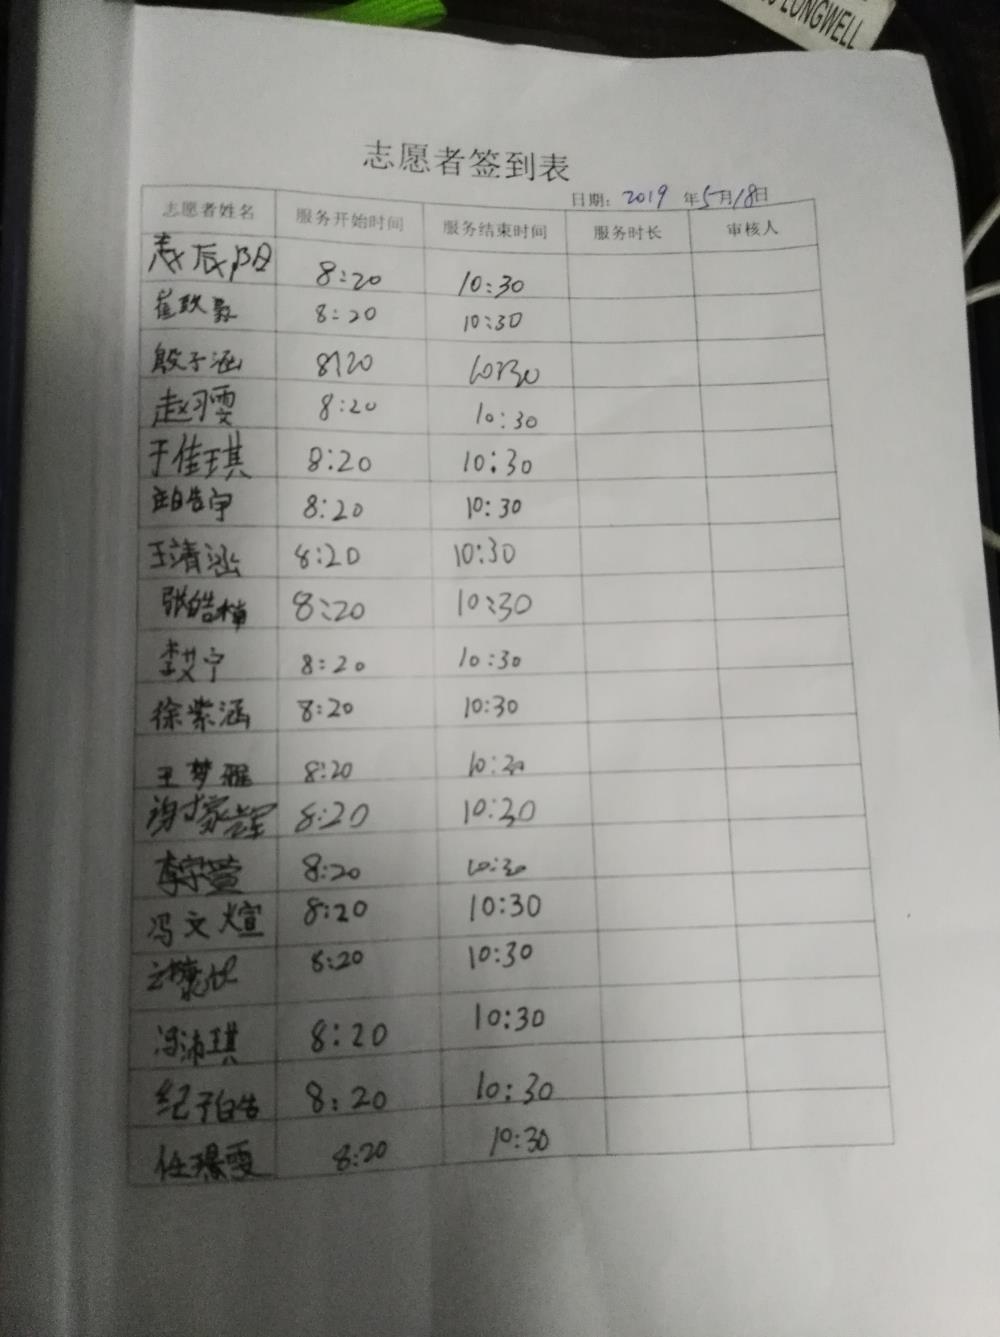 LONGWELL
志愿者签到表
日期: 2019 年5月18日
志愿者姓名 服务开始时间 服务结束时间 服务时长 审核人
辰阳 8:20 10:30
崔政 8:20 10:30
殷子涵 8:20 10:30
赵习雯 8:20 10:30
于佳琪 8:20 10:30
皓宇 8:20 10:30
王清涵 8:20 10:30
张皓 8:20 10:30
李艾宁 8:20 10:30
徐紫涵 8:20 10:30
王梦 8:20 10:30
家 8:20 10:30
李宇萱 8:20 10:30
冯文煊 8:20 10:30
8:20 10:30
冯沛琪 8:20 10:30
纪子皓 8:20 10:30
任璟雯 8:20 10:30